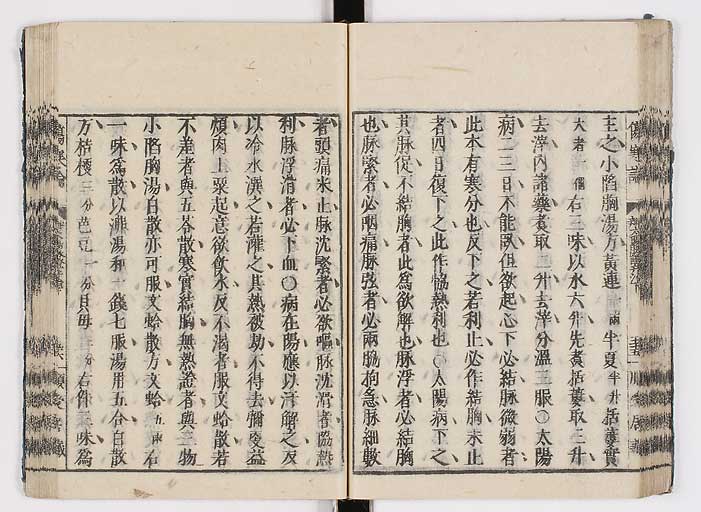 主之小陷胸湯方黃連一兩半夏半升括蔞實
大者一個右三味以水六升先煮括蔞取三升
去滓內諸藥煮取二升去滓分溫三服〇太陽
病二三日不能臥但欲起心下必結脉微弱者
此本有寒分也反下之若利止必作結胸未止
者四日復下之此作恊熱利也〇太陽病下之
其脉促不結胸者此爲欲解也脉浮者必結胸
也脉緊者必咽痛脉弦者必兩脇拘急脉細數
者頭痛未止脉沈緊者必欲嘔脉沈滑者恊熱
利脉浮滑者必下血〇病在陽應以汗解之反
以冷水潠之若灌之其熱被劫不得去彌更益
煩肉上粟起意欲飲水反不渴者服文蛤散若
不差者與五苓散寒實結胸無熱證者與三物
小陷胸湯白散亦可服文蛤散方文蛤五兩右
一味爲散以沸湯和一錢七服湯用五合白散
方桔梗三分芭豆一分貝母三分右件三味爲